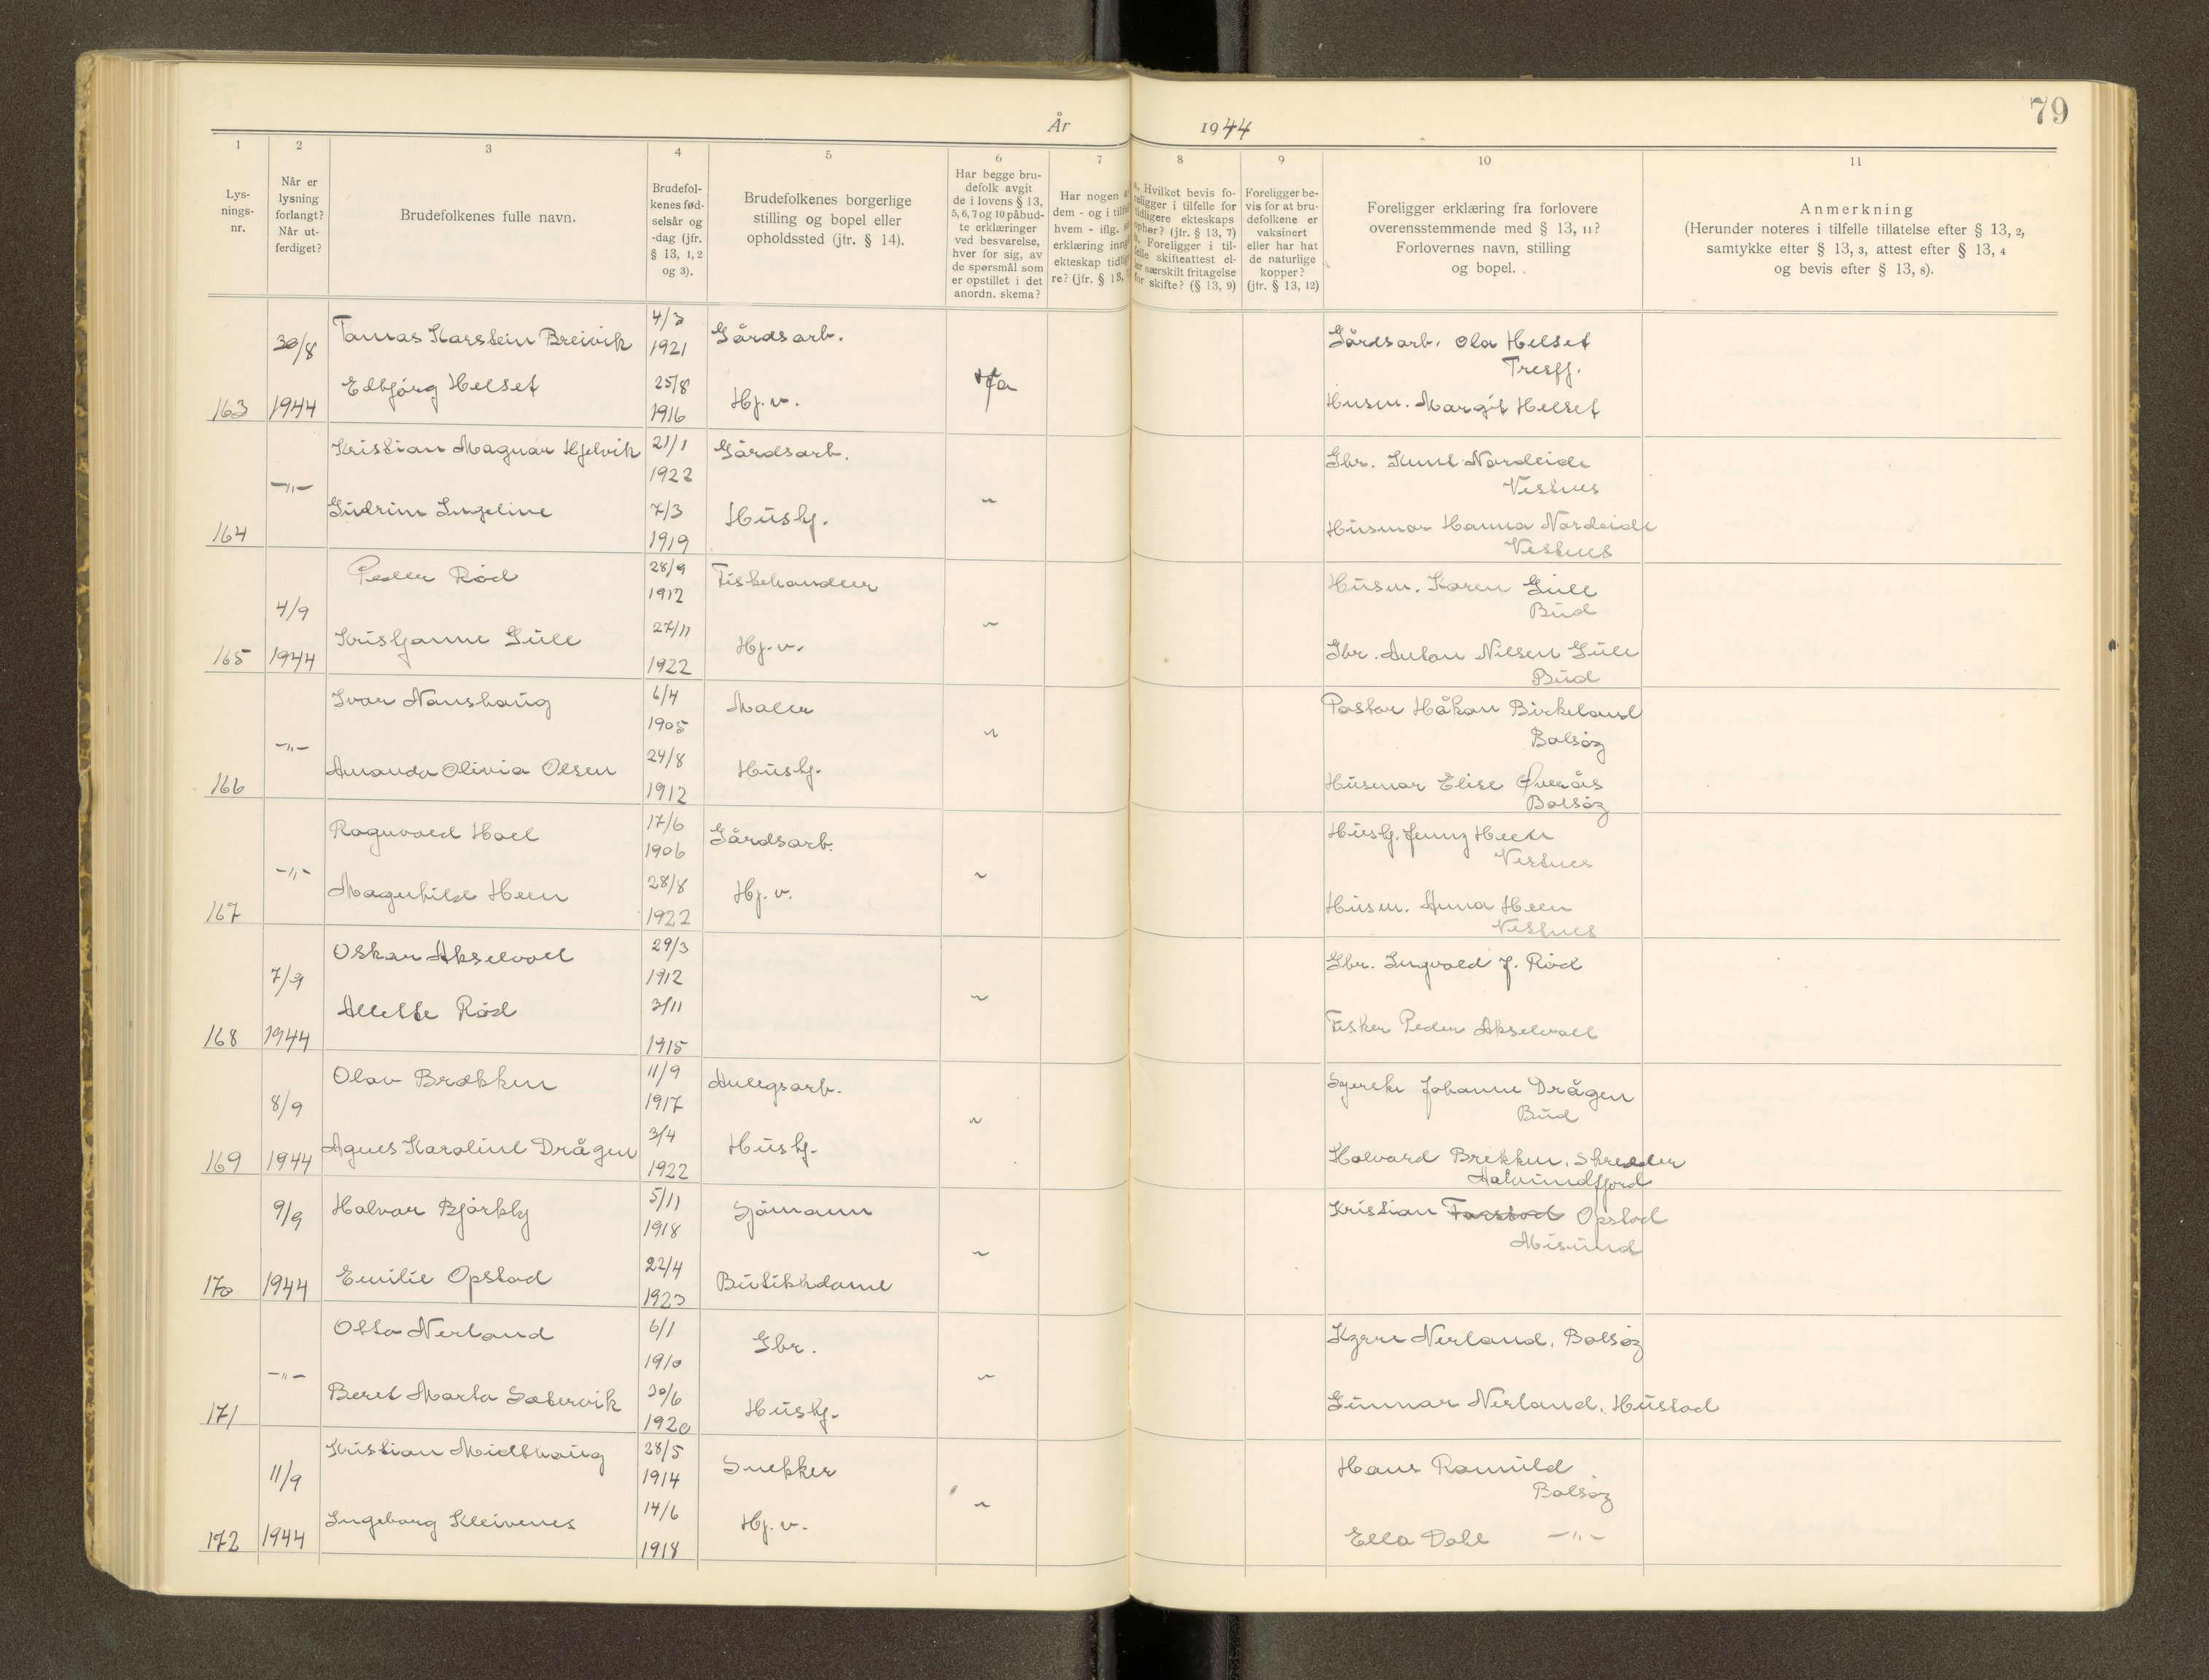 79
År 1944
1 2 3 4 5 6 7 8 9 10 11
Lys-
nings-
nr.
Når er
lysning
forlangt?
Når ut-
ferdiget?
Brudefolkenes fulle navn.
Brudefol-
kenes fød-
selsår og
-dag (jfr.
§ 13, 1, 2
og 3).
Brudefolkenes borgerlige
stilling og bopel eller
opholdssted (jfr. § 14).
Har begge bru-
defolk avgit
de i lovens § 13,
5, 6, 7 og 10 påbud-
te erklæringer
ved besvarelse,
hver for sig, av
de spørsmål som
er opstillet i det
anordn. skema?
Har nogen
dem - og i
hvem - iflg.
erklæring
ekteskap
re? (jfr. § 13,
Hvilket bevis fo-
religger i tilfelle for
tidligere ekteskaps
ophør? (jfr. § 13, 7)
Foreligger i til-
felle skifteattest el-
ler særskilt fritagelse
for skifte? (§ 13, 9)
Foreligger be-
vis for at bru-
defolkene er
vaksinert
eller har hat
de naturlige
kopper?
(jfr. § 13, 12)
Foreligger erklæring fra forlovere
overensstemmende med § 13, 11?
Forlovernes navn, stilling
og bopel.
Anmerkning
(Herunder noteres i tilfelle tillatelse efter § 13, 2,
samtykke efter § 13, 3, attest efter § 13, 4
og bevis efter § 13, 8).
30/8 Tomas Karstein Breivik 4/3 1921 Gårdsarb. Gårdsarb. Ola Helset
Tresfj.
163 1944 Edbjørg Helset 25/8 1916 Hj.v. Ja Husm. Margit Helset
Kristian Magnar Hjelvik 21/1 1922 Gårdsarb. Gbr. Knut Nordeide
Vestnes
164 -"- Gudrun Ingeline 7/3 1919 Hushj. ~ Husmor Hanna Nordeide
Vestnes
4/9 Peder Rød 28/9 1912 Fiskehandler Husm. Karen Gule
Bud
165 1944 Kristjanne Gule 27/11 1922 Hj.v. ~ Gbr. Anton Nilsen Gule
Bud
Ivar Naushaug 6/4 1905 Maler Pastor Håkon Birkeland
Bolsøy
166 -"- Amanda Olivia Olsen 24/8 1912 Hushj. ~ Husmor Elise Øverås
Bolsøy
Ragnvald Hoel 17/6 1906 Gårdsarb. Hushj. Jenny Heen
Vestnes
167 -"- Magnhild Heen 28/8 1922 Hj. v. ~ Husm. Anna Heen
Vestnes
7/9 Oskar Akselvoll 29/3 1912 Gbr. Ingvald J. Rød
168 1944 Allette Rød 3/11 1915 ~ Fisker Peder Akselvoll
8/9 Olav Brekken 11/9 1917 Anlegsarb. Syerske Johanne Drågen
Bud
169 1944 Agnes Karoline Drågen 3/4 1922 Hushj. ~ Halvard Brekken, Skredder
9/9 Halvar Bjørkly 5/11 1918 Sjømann Kristian Farstad Opstad
Misund
170 1944 Emilie Opstad 22/4 1923 Butikkdame ~
Otto Nerland 6/1 1910 Gbr. Nerland, Bolsøy
171 -"- Beret Marta Sotervik 30/6 1920 Hushj. ~ Gunnar Nerland, Hustad
11/9 Kristian Midthaug 28/5 1914 Snekker Hans Romuld
Bolsøy
172 1944 Ingeborg Kleivenes 14/6 1918 Hj. v. ~ Ella Dahl -"-